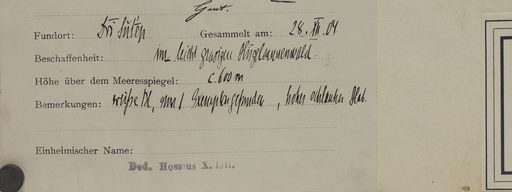 Fundort: Doi Sutep Gesammelt am: 28. XII. 04
Beschaffenheit: im leicht grasigen
Höhe über dem Meeresspiegel: c. 600 m
Bemerkungen: weiße Bl, nur 1 Exemplar gefunden, hoher schlanker
Einheimischer Name:
Ded. Hosseus X.